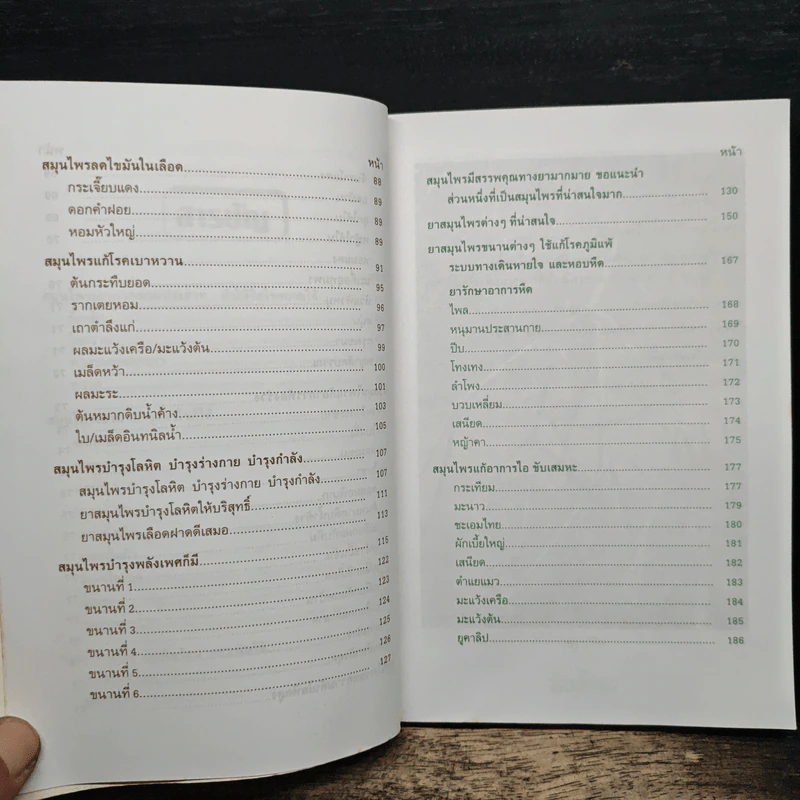 หน้า
สมุนไพรลดไขมันในเลือด 88
กระเจี๊ยบแดง 89
ดอกคำฝอย 89
หอมหัวใหญ่ 89
สมุนไพรแก้โรคเบาหวาน 91
ต้นกระทืบยอด 95
รากเตยหอม 96
เถาตำลึงแก่ 97
ผลมะแว้งเครือ/มะแว้งต้น 99
เมล็ดหว้า 100
ผลมะระ 101
ต้นหมากดิบน้ำค้าง 103
ใบ/เมล็ดอินทนิลน้ำ 105
สมุนไพรบำรุงโลหิต บำรุงร่างกาย บำรุงกำลัง 107
สมุนไพรบำรุงโลหิต บำรุงร่างกาย บำรุงกำลัง 107
ยาสมุนไพรบำรุงโลหิตให้บริสุทธิ์ 111
ยาสมุนไพรเลือดฝาดดีเสมอ 113
สมุนไพรบำรุงพลังเพศก็มี 115
ขนานที่ 1 122
ขนานที่ 2 123
ขนานที่ 3 124
ขนานที่ 4 125
ขนานที่ 5 126
ขนานที่ 6 127
หน้า
สมุนไพรมีสรรพคุณทางยามากมาย ขอแนะนำ
ส่วนหนึ่งที่เป็นสมุนไพรที่น่าสนใจมาก 130
ยาสมุนไพรต่างๆ ที่น่าสนใจ 150
ยาสมุนไพรขนานต่างๆ ใช้แก้โรคภูมิแพ้
ระบบทางเดินหายใจ และหอบหืด 167
ยารักษาอาการหืด
ไพล 168
หนุมานประสานกาย 169
ปีบ 170
โทงเทง 171
ลำโพง 172
บวบเหลี่ยม 173
เสนียด 174
หญ้าคา 175
สมุนไพรแก้อาการไอ ขับเสมหะ 177
กระเทียม 177
มะนาว 179
ชะเอมไทย 180
ผักเบี้ยใหญ่ 181
เสนียด 182
ตำแยแมว 183
มะแว้งเครือ 184
มะแว้งต้น 185
ยูคาลิป 186